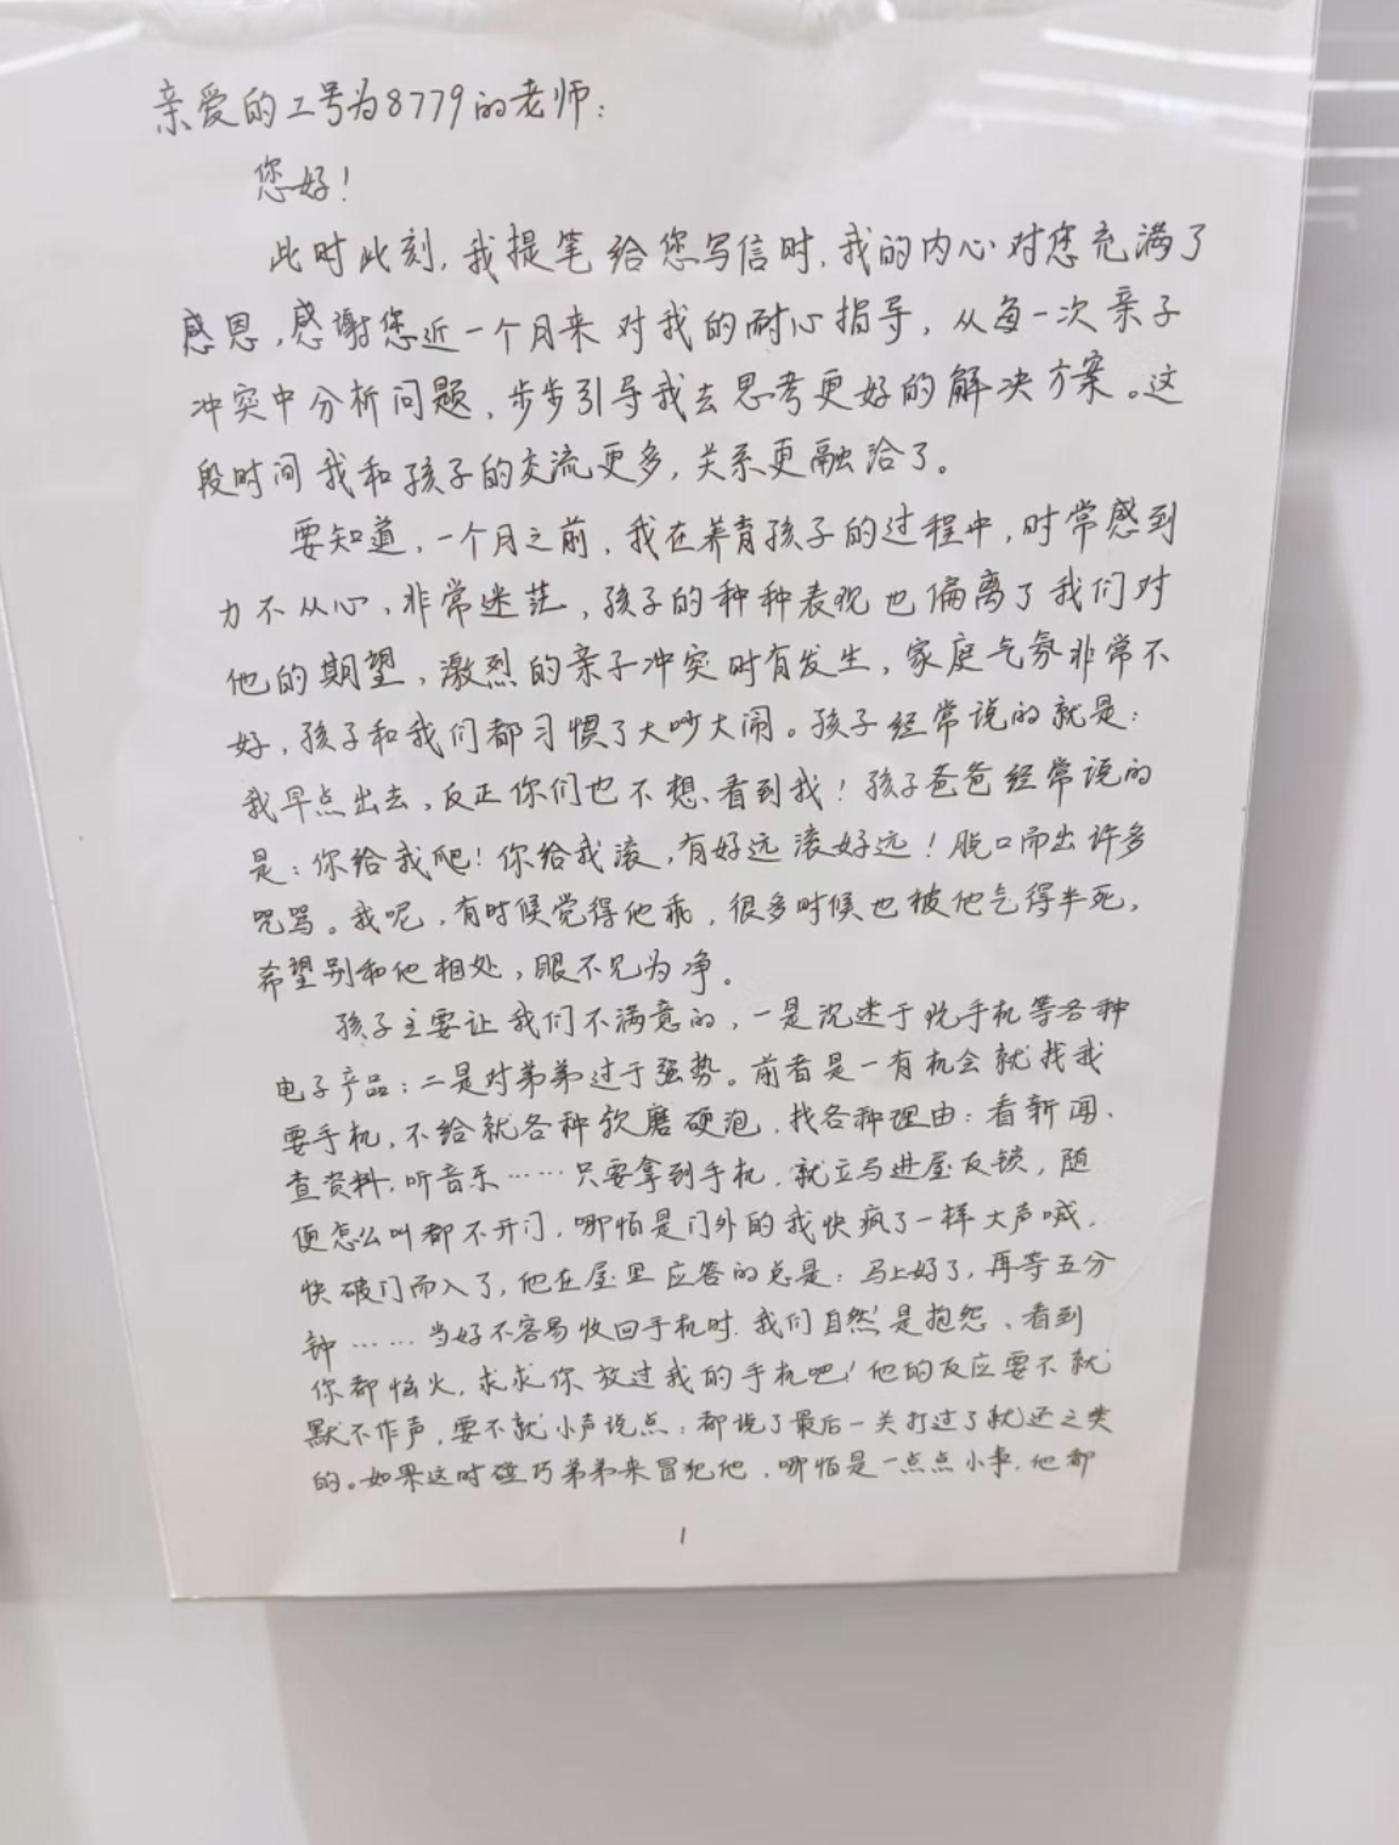 亲爱的工号为8779的老师：
您好！
此时此刻，我提笔给您写信时，我的内心对您充满了
感恩，感谢您近一个月来对我的耐心指导，从每一次亲子
冲突中分析问题，步步引导我去思考更好的解决方案。这
段时间我和孩子的交流更多，关系更融洽了。
要知道，一个月之前，我在养育孩子的过程中，时常感到
力不从心，非常迷茫，孩子的种种表现也偏离了我们对
他的期望，激烈的亲子冲突时有发生，家庭气氛非常不
好，孩子和我们都习惯了大吵大闹。孩子经常说的就是：
我早点出去，反正你们也不想看到我！孩子爸爸经常说的
是：你给我爬！你给我滚，有好远滚好远！脱口而出许多
咒骂。我呢，有时候觉得他乖，很多时候也被他气得半死，
希望别和他相处，眼不见为净。
孩子主要让我们不满意的，一是沉迷于玩手机等各种
电子产品；二是对弟弟过于强势。前者是一有机会就找我
要手机，不给就各种软磨硬泡，找各种理由：看新闻、
查资料、听音乐……只要拿到手机，就立马进屋反锁，随
便怎么叫都不开门，哪怕是门外的我快疯了一样大声喊，
快破门而入了，他在屋里应答的总是：马上好了，再等五分
钟……当好不容易收回手机时，我们自然是抱怨、看到
你都恼火，求求你放过我的手机吧！他的反应要不就
默不作声，要不就小声说点：都说了最后一关打过了就还之类
的。如果这时碰巧弟弟来冒犯他，哪怕是一点点小事，他都
1